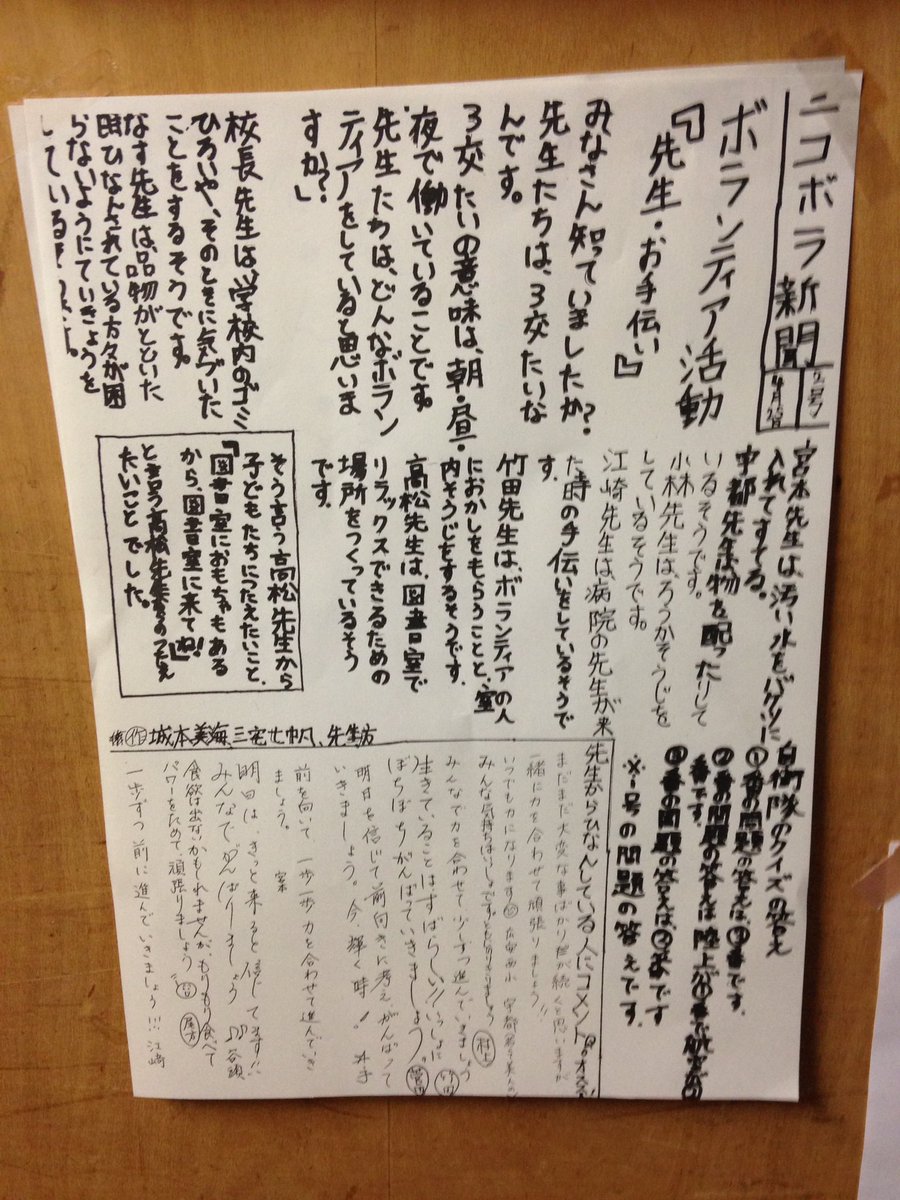 ニコボラ新聞
2号
ボランティア活動
『先生・お手伝い』
みなさん知っていましたか?
先生たちは、3交たいな
んです。
3交たいの意味は、朝・昼・
夜で働いていることです。
先生たちは、どんなボラン
ティアをしていると思いま
すか?
校長先生は、学校内のゴミ
ひろいや、そのときに気づいた
ことをするそうです。
なす先生は、品物がとどいた
時ひなんされている方々が困
らないようにていきょうを
している
宮本先生は、汚い水をバケツに
入れてすてる。
宇都先生は物を配ったりして
いるそうです。
小林先生は、ろうかそうじを
しているそうです。
江崎先生は、病院の先生が来
た時の手伝いをしているそうで
す。
竹田先生は、ボランティアの人
におかしをもらうことと、室
内そうじをするそうです。
高松先生は、図書室で
リラックスできるための
場所をつくっているそう
です。
そう言う高松先生から
子どもたちにつたえたいこと、
『図書室におもちゃもある
から、図書室に来てね!』
と言う高松先生のつたえ
たいことでした。
城本美海、三宅七帆、先生方
自衛隊のクイズの答え
①番の問題の答えは、③番です。
②番の問題の答えは陸上が①番で
番です。
③番の問題の答えは、②番です
※一号の問題の答えです。
先生からひなんしている人にコメント
まだまだ大変な事ばかりだが続くと思いますが
一緒に力を合わせて頑張りましょう!!
いつでも力になります
みんな気持ちはいっしょです。 村上
みんなで力を合わせて少しずつ進んでいきましょう 竹田
生きていることはすばらしい!!いっしょに
ぼちぼちがんばっていきましょう。 菅田
明日を信じて前向きに考えがんばって
いきましょう。今、輝く時!
前を向いて 一歩一歩力を合わせて進んでいき
ましょう。
明日は、きっと来ると信じてます!!
みんなでがんばりましょう 谷頭
食欲は出ないかもしれませんが、もりもり食べて
パワーをためて、頑張りましょう 尾方
一歩ずつ前に進んでいきましょう!!! 江崎